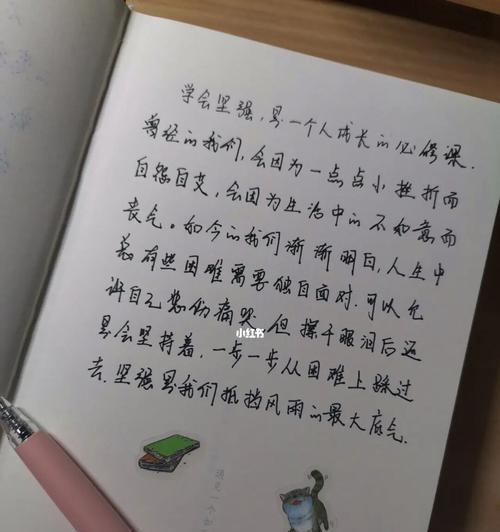 学会坚强,是一个人成长的必修课.
曾经的我们,会因为一点点小挫折而
自怨自艾,会因为生活中的不如意而
丧气。如今的我们渐渐明白,人生中
总有些困难需要独自面对.可以允
许自己悲伤痛哭 但擦干眼泪后还
是会坚持着,一步一步从困难上跺过
去.坚强是我们抵挡风雨的最大底气.
小红书